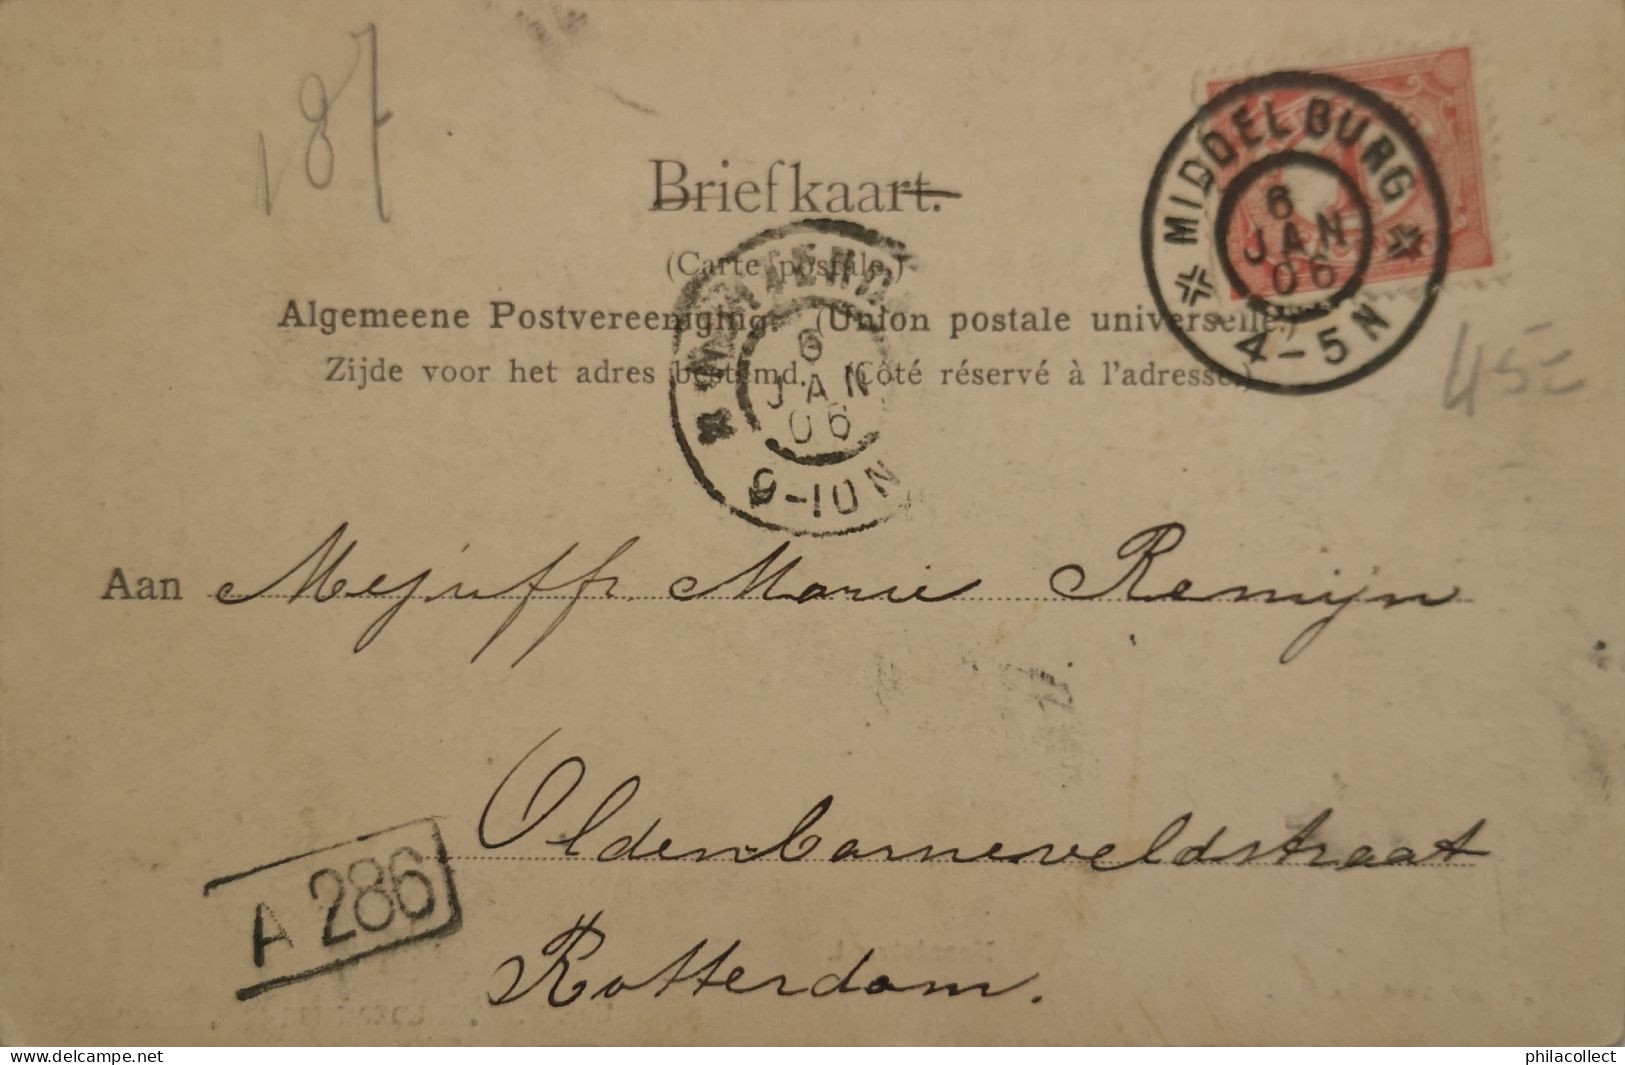 187
Briefkaart.
(Carte postale.)
Algemeene Postvereeniging. (Union postale universelle.)
Zijde voor het adres bestemd. (Côté réservé à l'adresse.)
MIDDELBURG
6
JAN
06
4-5N
6
JAN
06
9-10N
45=
Aan Mejuffr. Marie Remijn
Oldenbarneveldstraat
Rotterdam.
A 286
www.delcampe.net
philacollect